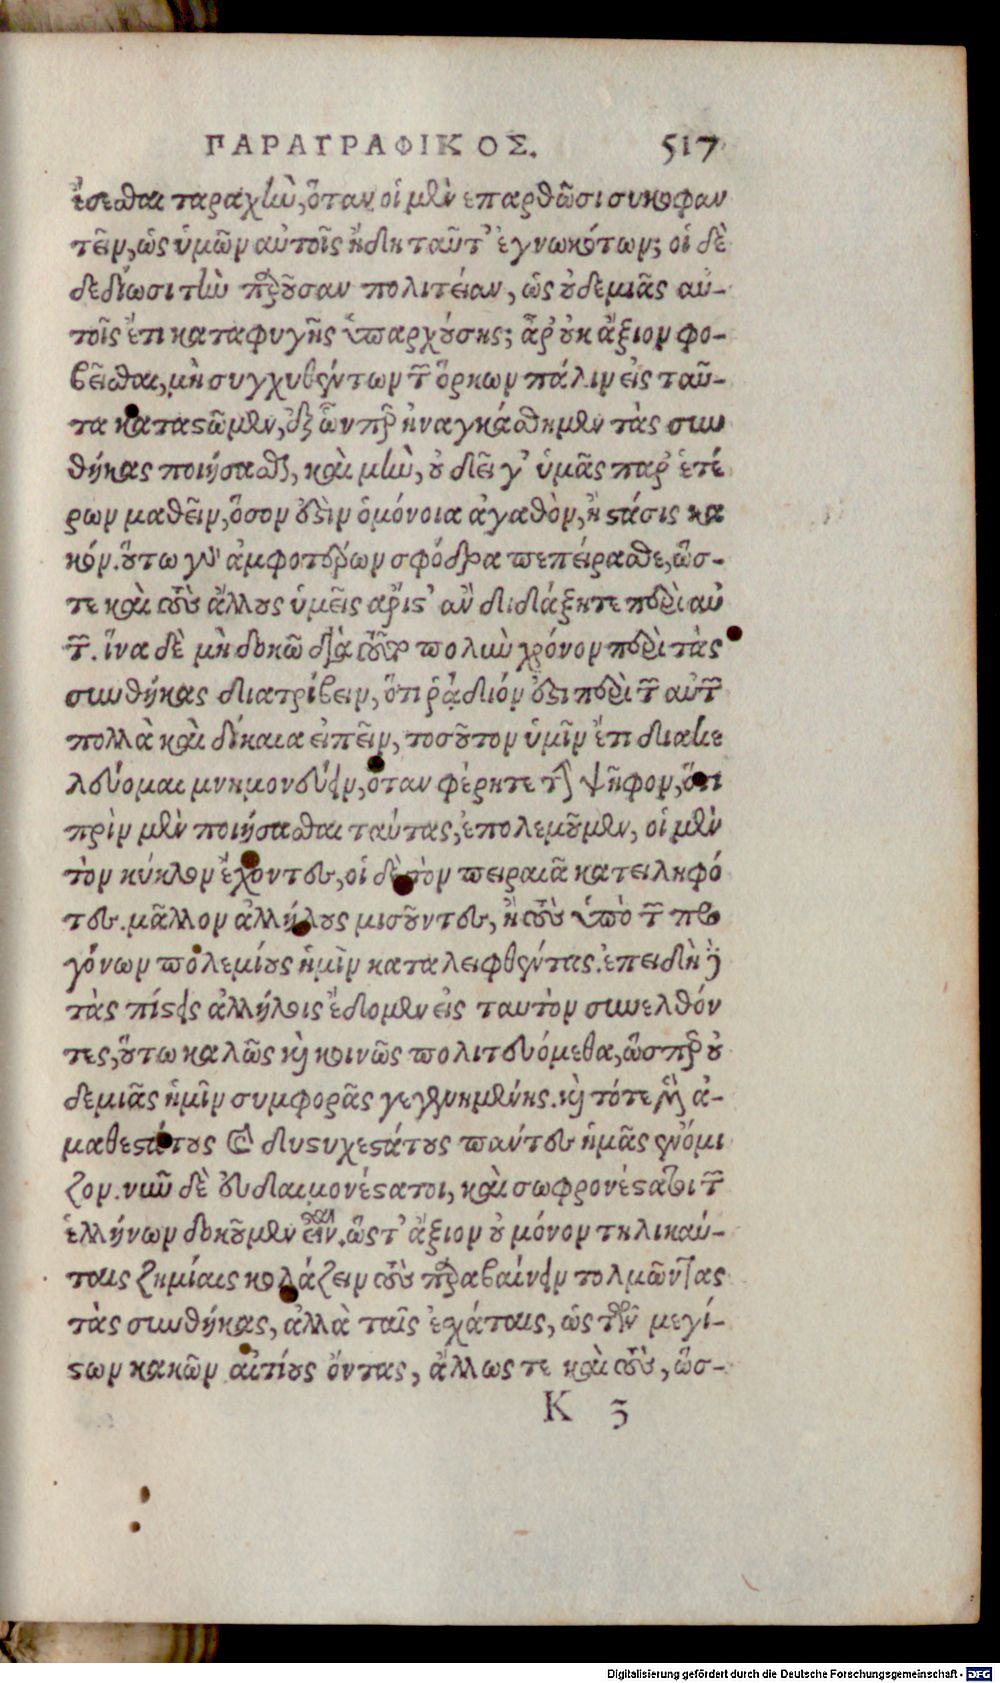 ΠΑΡΑΓΡΑΦΙΚΟΣ. 517
έσεσθαι ταραχὴν, ὅταν οἱ μὲν ἐπαρθῶσι συκοφαν
τεῖν, ὡς ὑμῶν αὐτοῖς ἤδη ταῦτ' ἐγνωκότων; οἱ δὲ
δεδίωσι τὴν παροῦσαν πολιτείαν, ὡς οὐδεμιᾶς αὐ-
τοῖς ἔτι καταφυγῆς ὑπαρχούσης; ἆρ' οὐκ ἄξιον φο-
βεῖσθαι, μὴ συγχυθέντων τῶν ὅρκων πάλιν εἰς ταὐ-
τὰ καταστῶμεν, ἐξ ὧνπερ ἠναγκάσθημεν τὰς συν
θήκας ποιήσασθαι, καὶ μὴν, οὐ δεῖ γ' ὑμᾶς παρ' ἑτέ
ρων μαθεῖν, ὅσον ἐστὶν ὁμόνοια ἀγαθὸν, ἢ στάσις κα
κόν. οὕτω γὰρ ἀμφοτέρων σφόδρα πεπείρασθε, ὥσ-
τε καὶ τοὺς ἄλλους ὑμεῖς ἄριστ' ἂν διδάξητε περὶ αὐ
τῶν. ἵνα δὲ μὴ δοκῶ διὰ τοῦτο πολὺν χρόνον περὶ τὰς
συνθήκας διατρίβειν, ὅτι ῥᾴδιόν ἐστι περὶ τῶν αὐτῶν
πολλὰ καὶ δίκαια εἰπεῖν, τοσοῦτον ὑμῖν ἔτι διακε
λεύομαι μνημονεύειν, ὅταν φέρητε τὴν ψῆφον, ὅτι
πρὶν μὲν ποιήσασθαι ταύτας, ἐπολεμοῦμεν, οἱ μὲν
τὸν κύκλον ἔχοντες, οἱ δὲ τὸν πειραιᾶ κατειληφό
τες. μᾶλλον ἀλλήλους μισοῦντες, ἢ τοὺς ὑπὸ τῶν προ
γόνων πολεμίους ἡμῖν καταλειφθέντας. ἐπειδὴ δὲ
τὰς πίστεις ἀλλήλοις ἔδομεν εἰς ταυτὸν συνελθόν
τες, οὕτω καλῶς καὶ κοινῶς πολιτευόμεθα, ὥσπερ οὐ
δεμιᾶς ἡμῖν συμφορᾶς γεγενημένης. καὶ τότε μὲν ἀ-
μαθεστάτους καὶ δυστυχεστάτους πάντες ἡμᾶς ἐνόμι
ζον. νῦν δὲ εὐδαιμονέστατοι, καὶ σωφρονέστατοι τῶν
ἑλλήνων δοκοῦμεν εἶναι. ὥστ' ἄξιον οὐ μόνον τηλικαύ-
ταις ζημίαις κολάζειν τοὺς παραβαίνειν τολμῶντας
τὰς συνθήκας, ἀλλὰ ταῖς ἐσχάταις, ὡς τῶν μεγί-
στων κακῶν αἰτίους ὄντας, ἄλλως τε καὶ τοὺς, ὥσ-
K 3
Digitalisierung gefördert durch die Deutsche Forschungsgemeinschaft - DFG